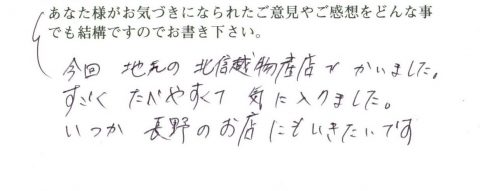 あなた様がお気づきになられたご意見やご感想をどんな事
でも結構ですのでお書き下さい。
今回 地元の 北信越物産店で かいました。
すごく たべやすくて 気に入りました。
いつか 長野のお店にもいきたいです